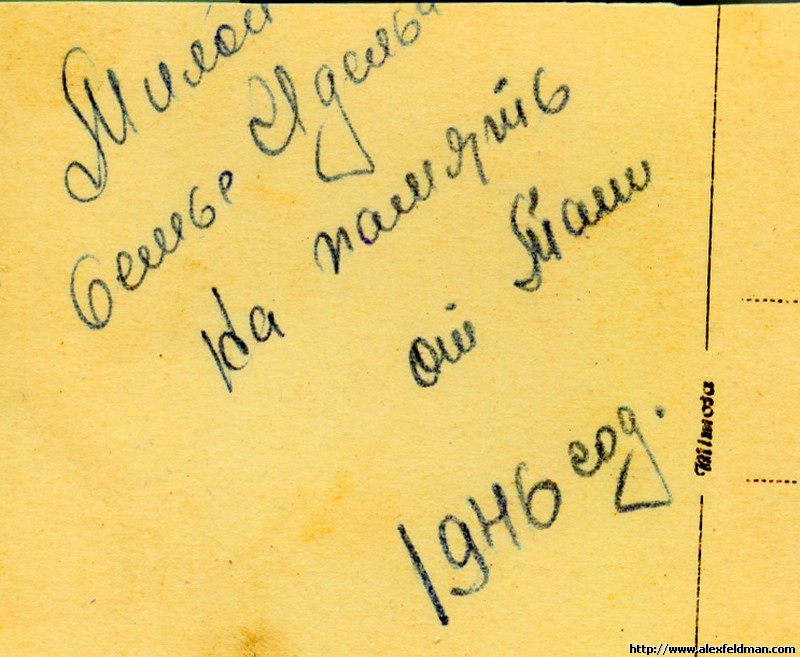 Милой
семье
На память
от Тани
1946 год.
Mimosa
http://www.alexfeldman.com